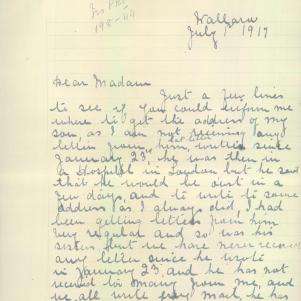 Wallaroo
July 1917
Dear Madam
Just a few lines
to see if you could inform me
where to get the address of my
son, as I am not receiving any
letters from him, last letter written since
January 23rd, he was then in
a Hospital in London but he said
that he would be out in a
few days, and to write to same
address as I always did, I had
been getting letters from him
very regular and so was his
sisters but we have never received
any letter since he wrote
in January 23, and he has not
received too many from me, and
we all write every mail, he has